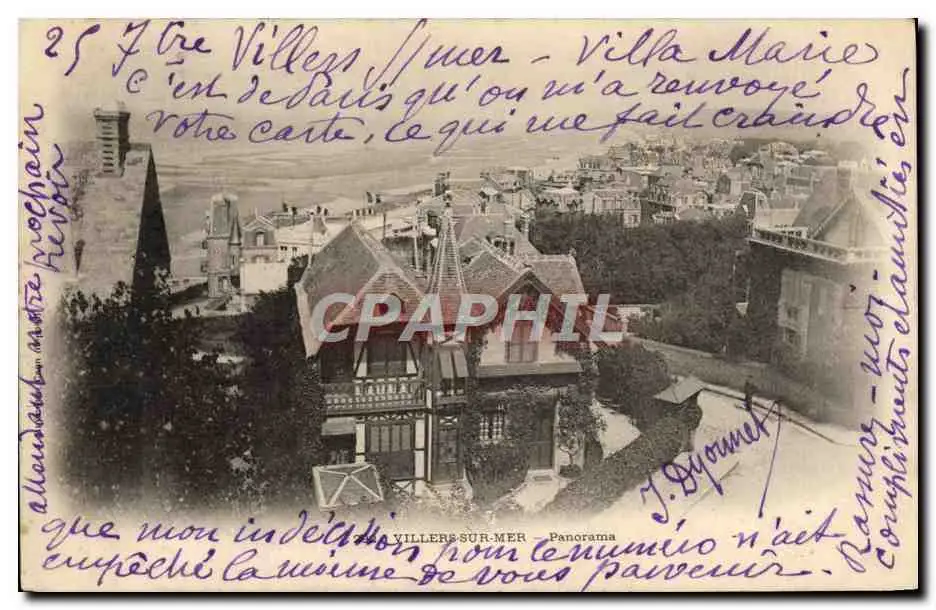 25 7bre Villers s/mer - Villa Marie
C'est de Paris qu'on m'a renvoyé
votre carte, ce qui me fait craindre
que mon indécision pour le numéro n'ait
empêché la mienne de vous parvenir.
Rassurez-moi
complimente charmants et amitiés en
attendant notre prochain
revoir
J. Dyonnet
VILLERS-SUR-MER - Panorama
CPARAMA